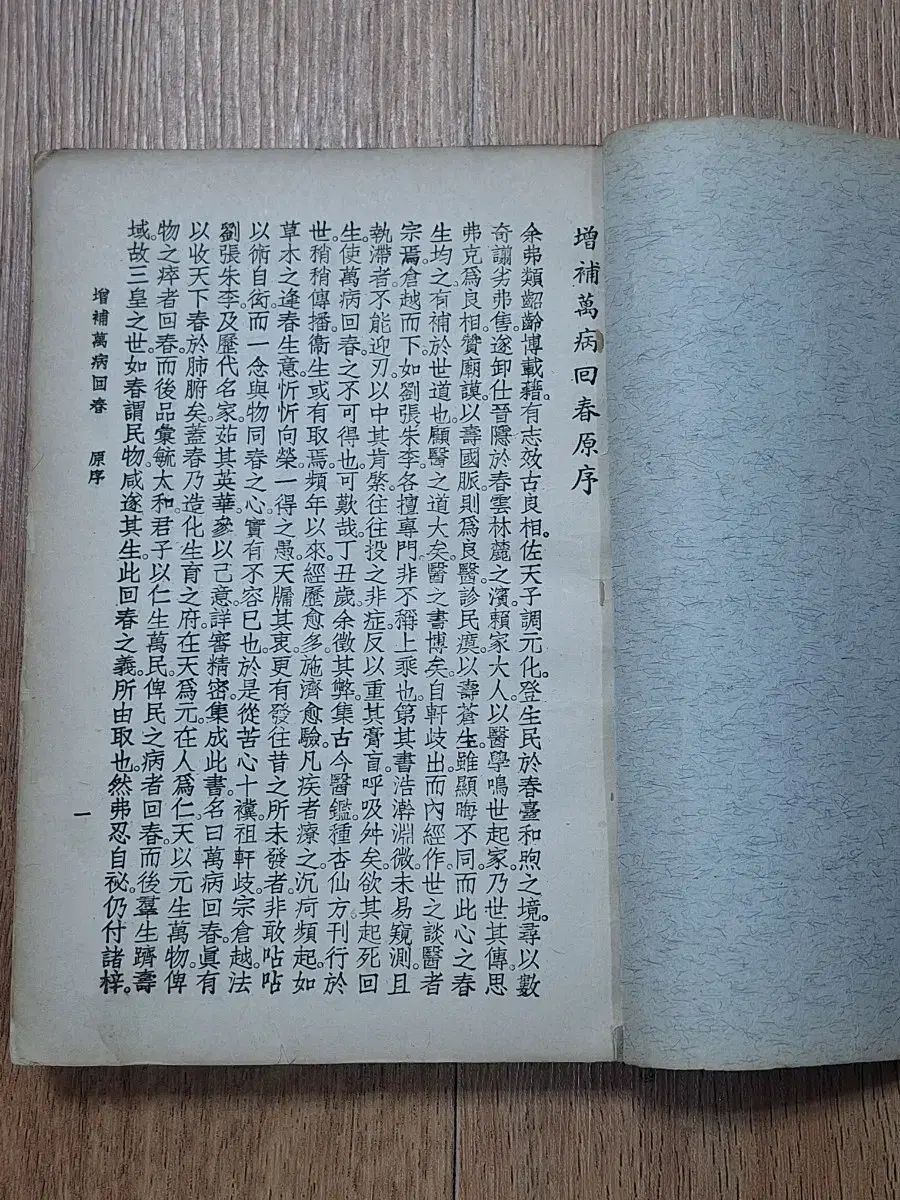 增補萬病回春原序
余弗類齠齡博載籍。有志效古良相。佐天子調元化。登生民於春臺和煦之境。尋以數
奇譾劣弗售。遂卸仕晉隱於春雲林麓之濱。賴家大人以醫學鳴世起家。乃世其傳。思
弗克爲良相。贊廟謨以壽國脈。則爲良醫。診民瘼以壽蒼生。雖顯晦不同。而此心之春
生均之有補於世道也。顧醫之道大矣。醫之書博矣。自軒歧出而內經作。世之談醫者
宗焉。倉越而下。如劉張朱李。各擅專門。非不稱上乘也。第其書浩澣淵微。未易窺測。且
執滯者不能迎刃以中其肯綮。往往投之非症。反以重其膏肓。呼吸舛矣。欲其起死回
生。使萬病回春之不可得也。可歎哉。丁丑歲。余徵其弊。集古今醫鑑。種杏仙方。刊行於
世。稍稍傳播。衞生或有取焉。頻年以來。經歷愈多。施濟愈驗。凡疾者療之。沉疴頻起。如
草木之逢春。生意忻忻向榮。一得之愚。天牖其衷。更有發往昔之所未發者。非敢呫呫
以術自衒。而一念與物同春之心。實有不容已也。於是從苦心十禩。祖軒歧。宗倉越。法
劉張朱李及歷代名家。茹其英華。參以己意。詳審精密。集成此書。名曰萬病回春。眞有
以收天下春於肺腑矣。蓋春乃造化生育之府。在天爲元。在人爲仁。天以元生萬物。俾
物之瘁者回春。而後品彙毓太和。君子以仁生萬民。俾民之病者回春。而後羣生躋壽
域。故三皇之世如春。謂民物咸遂其生。此回春之義。所由取也。然弗忍自祕。仍付諸梓。
增補萬病回春 原序
一